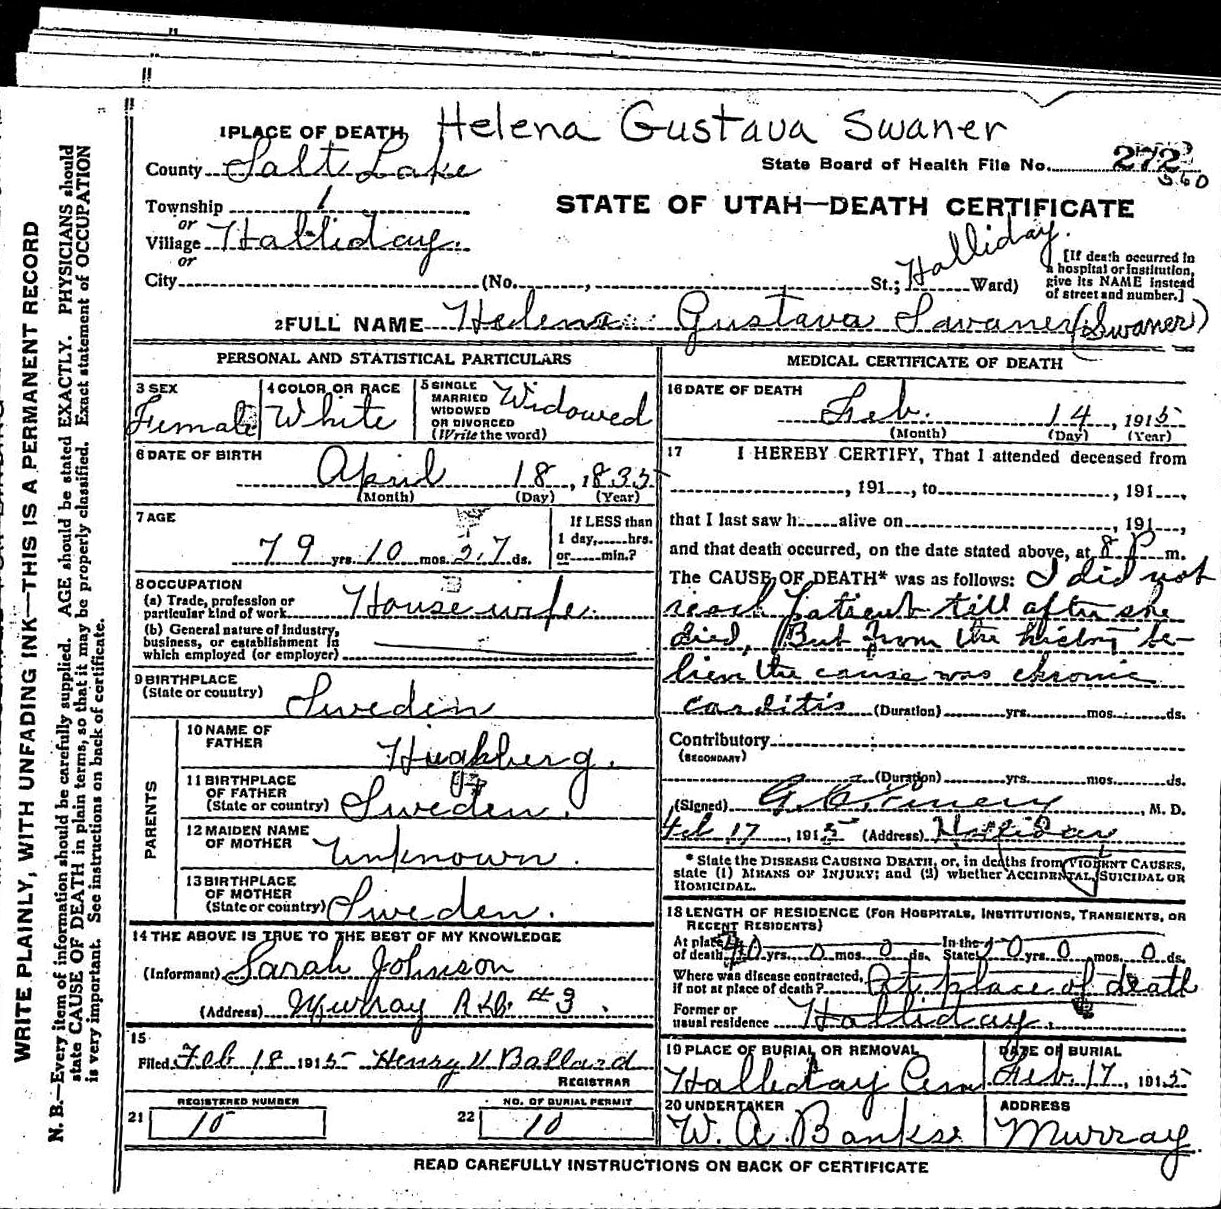 Helena Gustava Swaner
1 PLACE OF DEATH
County Salt Lake
State Board of Health File No. 272
560
Township /
or
Village Halliday.
or
STATE OF UTAH—DEATH CERTIFICATE
City (No. , St.; Halliday. Ward)
[If death occurred in
a hospital or institution,
give its NAME instead
of street and number.]
2 FULL NAME Helena Gustava Savaner (Swaner)
PERSONAL AND STATISTICAL PARTICULARS
3 SEX
Female
4 COLOR OR RACE
White
5 SINGLE
MARRIED
WIDOWED
OR DIVORCED
(Write the word)
Widowed
6 DATE OF BIRTH
April 18, 1835
(Month) (Day) (Year)
7 AGE
79 yrs. 10 mos. 27 ds.
If LESS than
1 day, hrs.
or min.?
8 OCCUPATION
(a) Trade, profession or
particular kind of work House wife.
(b) General nature of industry,
business, or establishment in
which employed (or employer)
9 BIRTHPLACE
(State or country) Sweden
PARENTS
10 NAME OF
FATHER
11 BIRTHPLACE
OF FATHER
(State or country) Sweden.
12 MAIDEN NAME
OF MOTHER Unknown.
13 BIRTHPLACE
OF MOTHER
(State or country) Sweden.
14 THE ABOVE IS TRUE TO THE BEST OF MY KNOWLEDGE
(Informant) Sarah Johnson
(Address) Murray R.D. #3.
15
Filed Feb 18 1915 Henry V Ballard
REGISTRAR
21 REGISTERED NUMBER
10
22 NO. OF BURIAL PERMIT
10
MEDICAL CERTIFICATE OF DEATH
16 DATE OF DEATH
Feb. 14, 1915
(Month) (Day) (Year)
17 I HEREBY CERTIFY, That I attended deceased from
, 191 , to , 191 ,
that I last saw h alive on , 191 ,
and that death occurred, on the date stated above, at 8 P m.
The CAUSE OF DEATH* was as follows: I did not
reach Patient till after she
died, But from the history be-
lieve the cause was chronic
carditis (Duration) yrs. mos. ds.
Contributory
(SECONDARY)
(Duration) yrs. mos. ds.
(Signed) M. D.
Feb 17, 1915 (Address) Halliday
* State the DISEASE CAUSING DEATH, or, in deaths from VIOLENT CAUSES,
state (1) MEANS OF INJURY; and (2) whether ACCIDENTAL, SUICIDAL OR
HOMICIDAL.
18 LENGTH OF RESIDENCE (FOR HOSPITALS, INSTITUTIONS, TRANSIENTS, OR
RECENT RESIDENTS)
At place
of death 40 yrs. 0 mos. 0 ds. In the
State 0 yrs. 0 mos. 0 ds.
Where was disease contracted,
if not at place of death? At place of death
Former or
usual residence Halliday.
19 PLACE OF BURIAL OR REMOVAL
Halliday Cem
DATE OF BURIAL
Feb. 17, 1915
20 UNDERTAKER
W. A. Banks.
ADDRESS
Murray.
READ CAREFULLY INSTRUCTIONS ON BACK OF CERTIFICATE
WRITE PLAINLY, WITH UNFADING INK—THIS IS A PERMANENT RECORD
N. B.—Every item of information should be carefully supplied. AGE should be stated EXACTLY. PHYSICIANS should
state CAUSE OF DEATH in plain terms, so that it may be properly classified. Exact statement of OCCUPATION
is very important. See instructions on back of certificate.